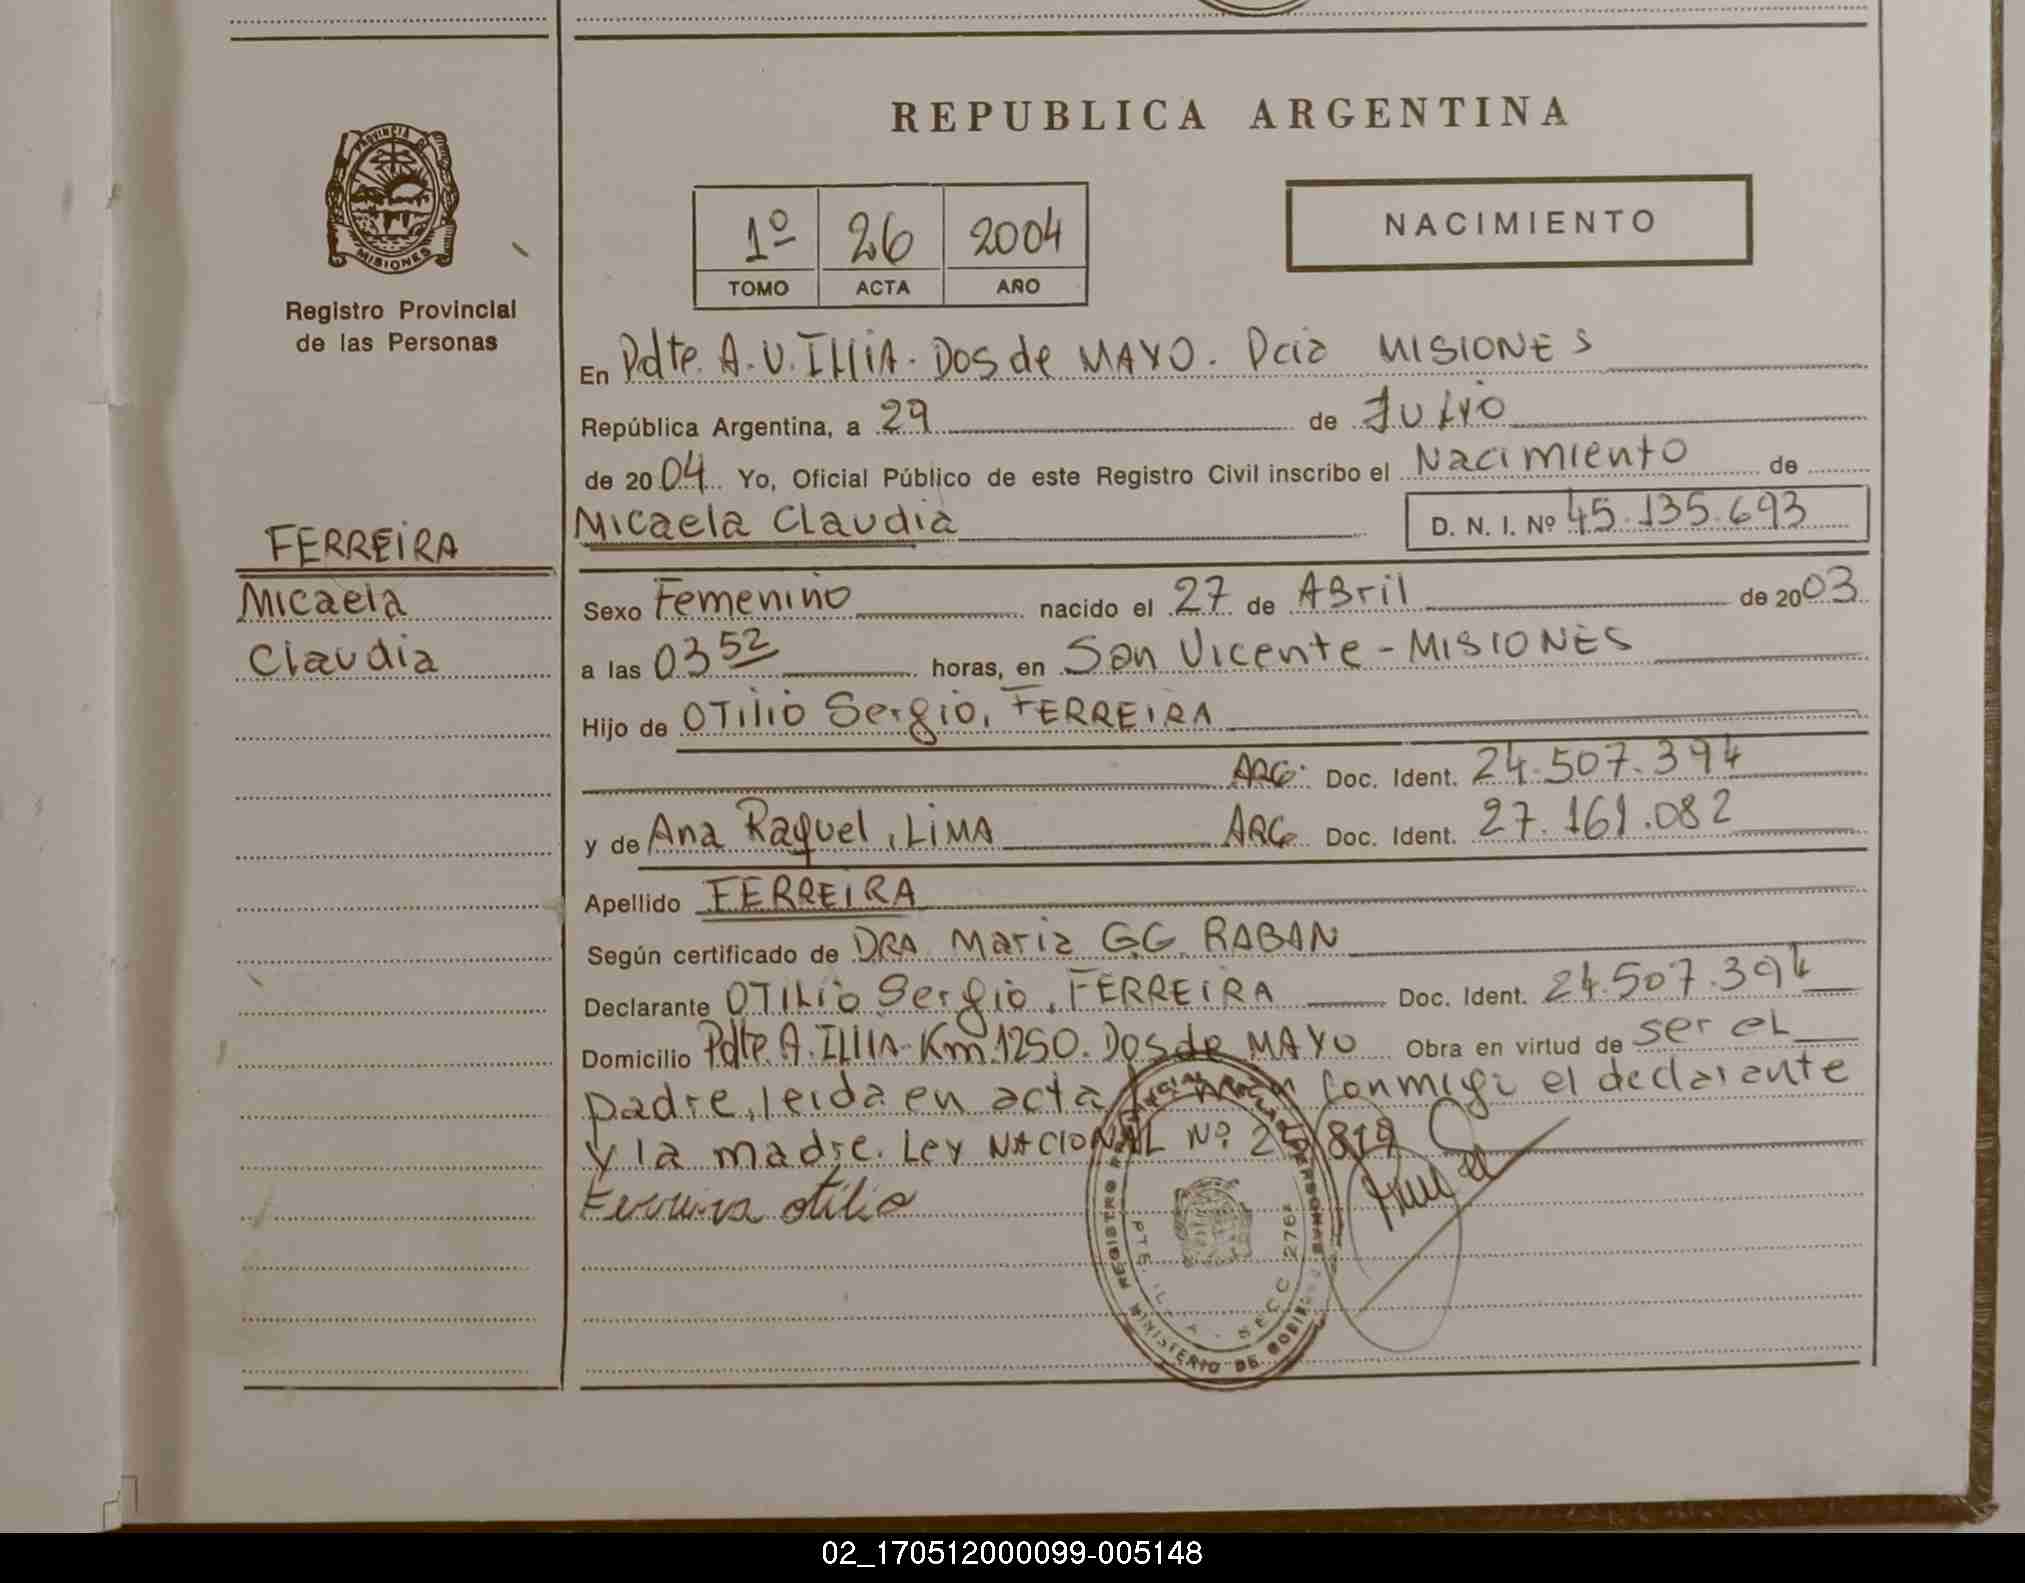 PROVINCIA DE
MISIONES
Registro Provincial
de las Personas
REPUBLICA ARGENTINA
1º 26 2004
TOMO ACTA AÑO
NACIMIENTO
En Pdte. A. U. ILLIA. Dos de MAYO. Pcia MISIONES
República Argentina, a 29 de Julio
de 2004 Yo, Oficial Público de este Registro Civil inscribo el Nacimiento de
Micaela Claudia D. N. I. Nº 45.135.693
FERREIRA
Micaela
Claudia
Sexo Femenino nacido el 27 de ABril de 2003
a las 03 52 horas, en San Vicente - MISIONES
Hijo de OTilio Sergio, FERREIRA
ARG. Doc. Ident. 24.507.394
y de Ana Raquel, LIMA ARG Doc. Ident. 27.161.082
Apellido FERREIRA
Según certificado de DRA. Maria G.G. RABAN
Declarante OTILIO Sergio, FERREIRA Doc. Ident. 24.507.394
Domicilio Pdte. A. ILLIA. Km. 1250. Dos de MAYO Obra en virtud de ser el
padre, leida en acta conmigo el declarante
y la madre. Ley NACIONAL Nº 2 819
Ferreira otilio
MINISTERIO DE GOBIERNO
SECC 276
02_170512000099-005148